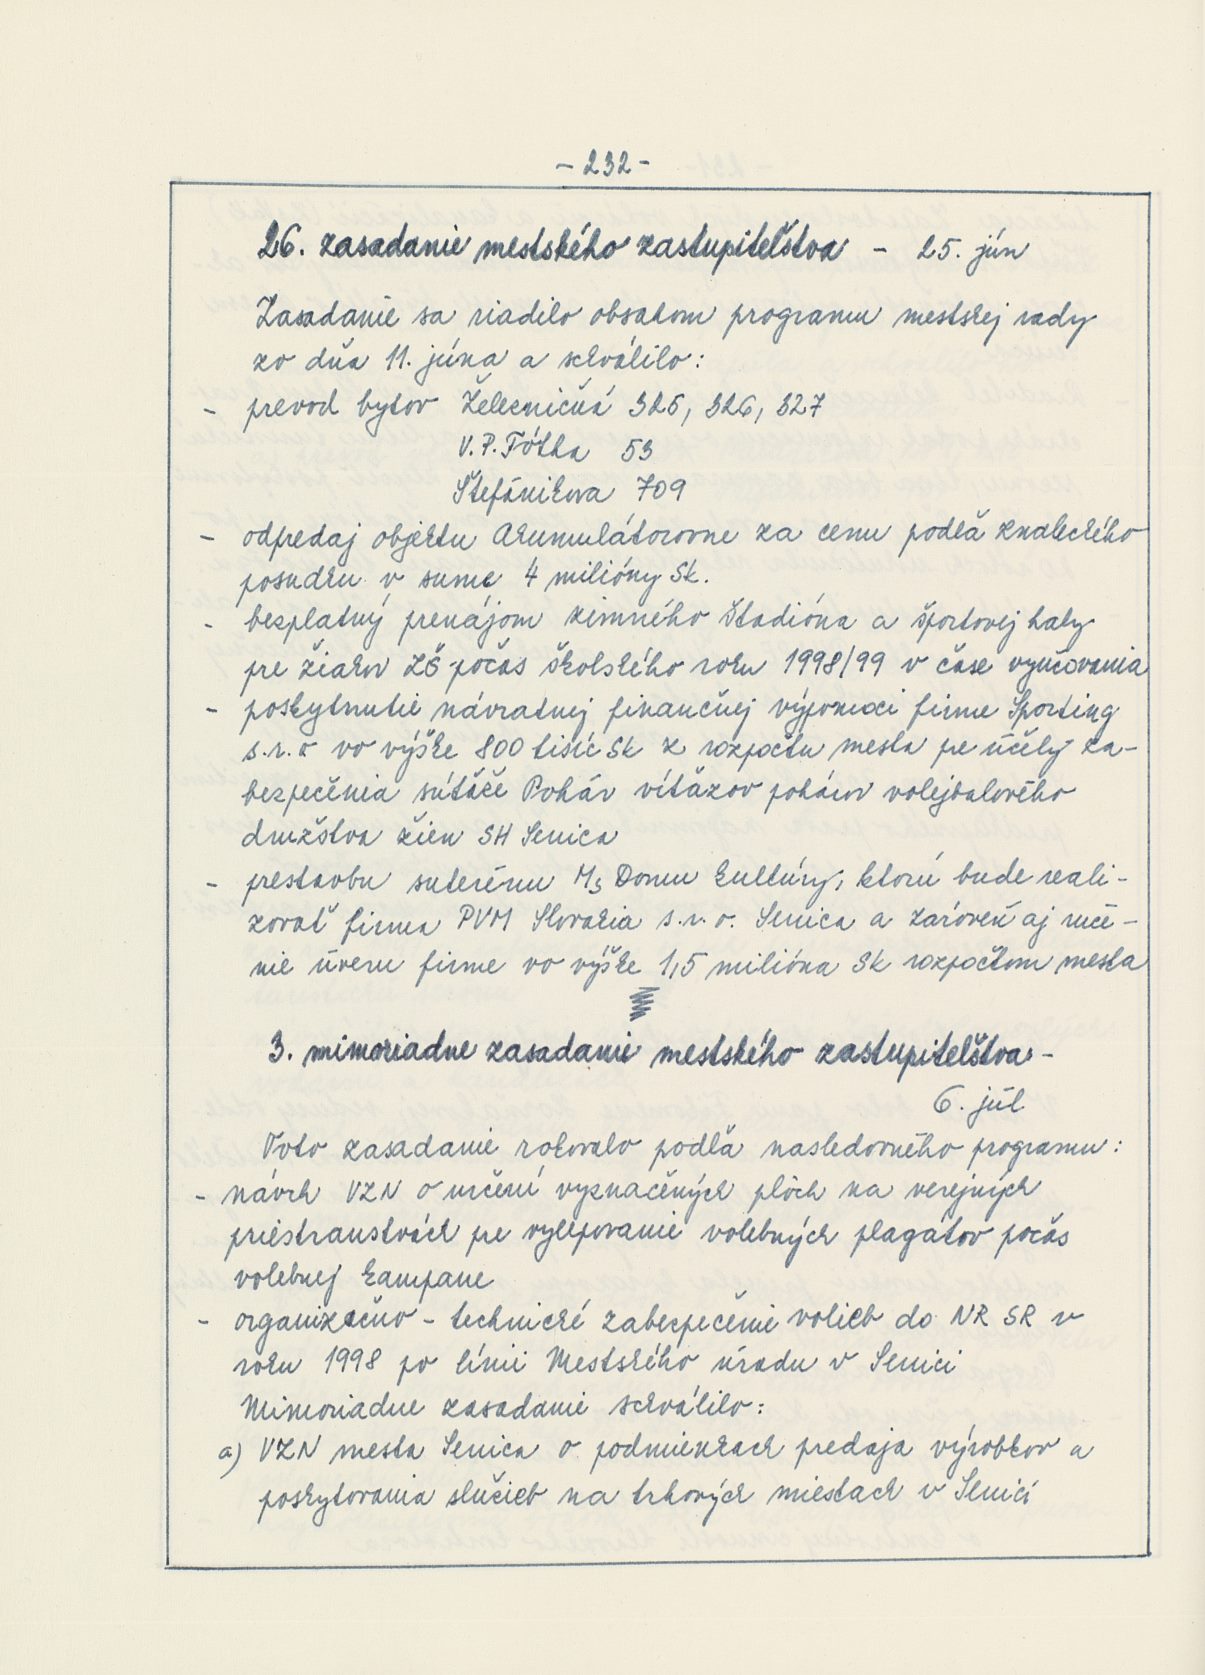 - 232 -
26. zasadanie mestského zastupiteľstva - 25. jún
Zasadanie sa riadilo obsahom programu mestskej rady
zo dňa 11. júna a schválilo:
- prevod bytov Železničná 325, 326, 327
V. P. Tótha 53
Štefánikova 709
- odpredaj objektu Akumulátorovne za cenu podľa znaleckého
posudku v sume 4 milióny Sk.
- bezplatný prenájom zimného štadióna a športovej haly
pre žiakov ZŠ počas školského roku 1998/99 v čase vyučovania
- poskytnutie návratnej finančnej výpomoci firme Sporting
s.r.o vo výške 800 tisíc Sk z rozpočtu mesta pre účely za-
bezpečenia súťaže Pohár víťazov pohárov volejbalového
družstva žien SH Senica
- prestavbu suterénu Ms Domu kultúry, ktorú bude reali-
zovať firma PVM Slovakia s.r.o. Senica a zároveň aj ruče-
nie úveru firme vo výške 1,5 milióna Sk rozpočtom mesta
3. mimoriadne zasadanie mestského zastupiteľstva -
6. júl
Toto zasadanie rokovalo podľa nasledovného programu:
- návrh VZN o určení vyznačených plôch na verejných
priestranstvách pre vylepovanie volebných plagátov počas
volebnej kampane
- organizačno - technické zabezpečenie volieb do NR SR v
roku 1998 po línii Mestského úradu v Senici
Mimoriadne zasadanie schválilo:
a) VZN mesta Senica o podmienkach predaja výrobkov a
poskytovania služieb na trhových miestach v Senici